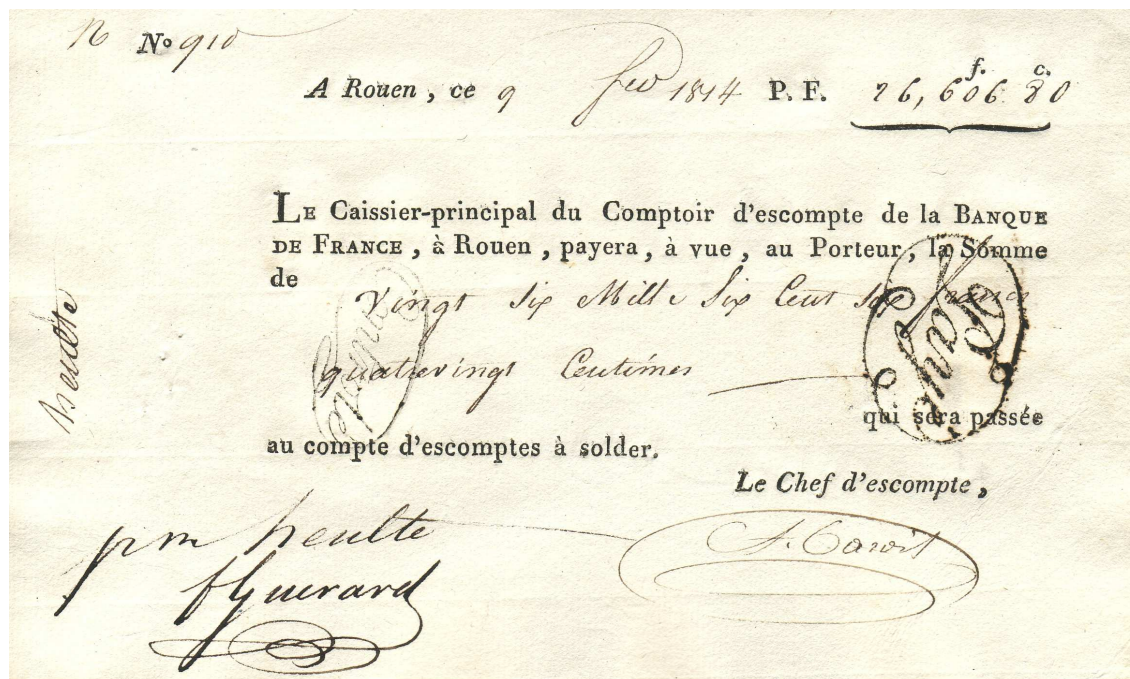 N° 910
A Rouen, ce 9 fev 1814 P. F. 26,606 f. 80 c.
LE Caissier-principal du Comptoir d'escompte de la BANQUE
DE FRANCE, à Rouen, payera, à vue, au Porteur, la Somme
de
Vingt Six Mille Six Cent Six francs
quatrevingt Centimes
qui sera passée
au compte d'escomptes à solder.
Le Chef d'escompte,
heulte
pr m heulte
f Guerard